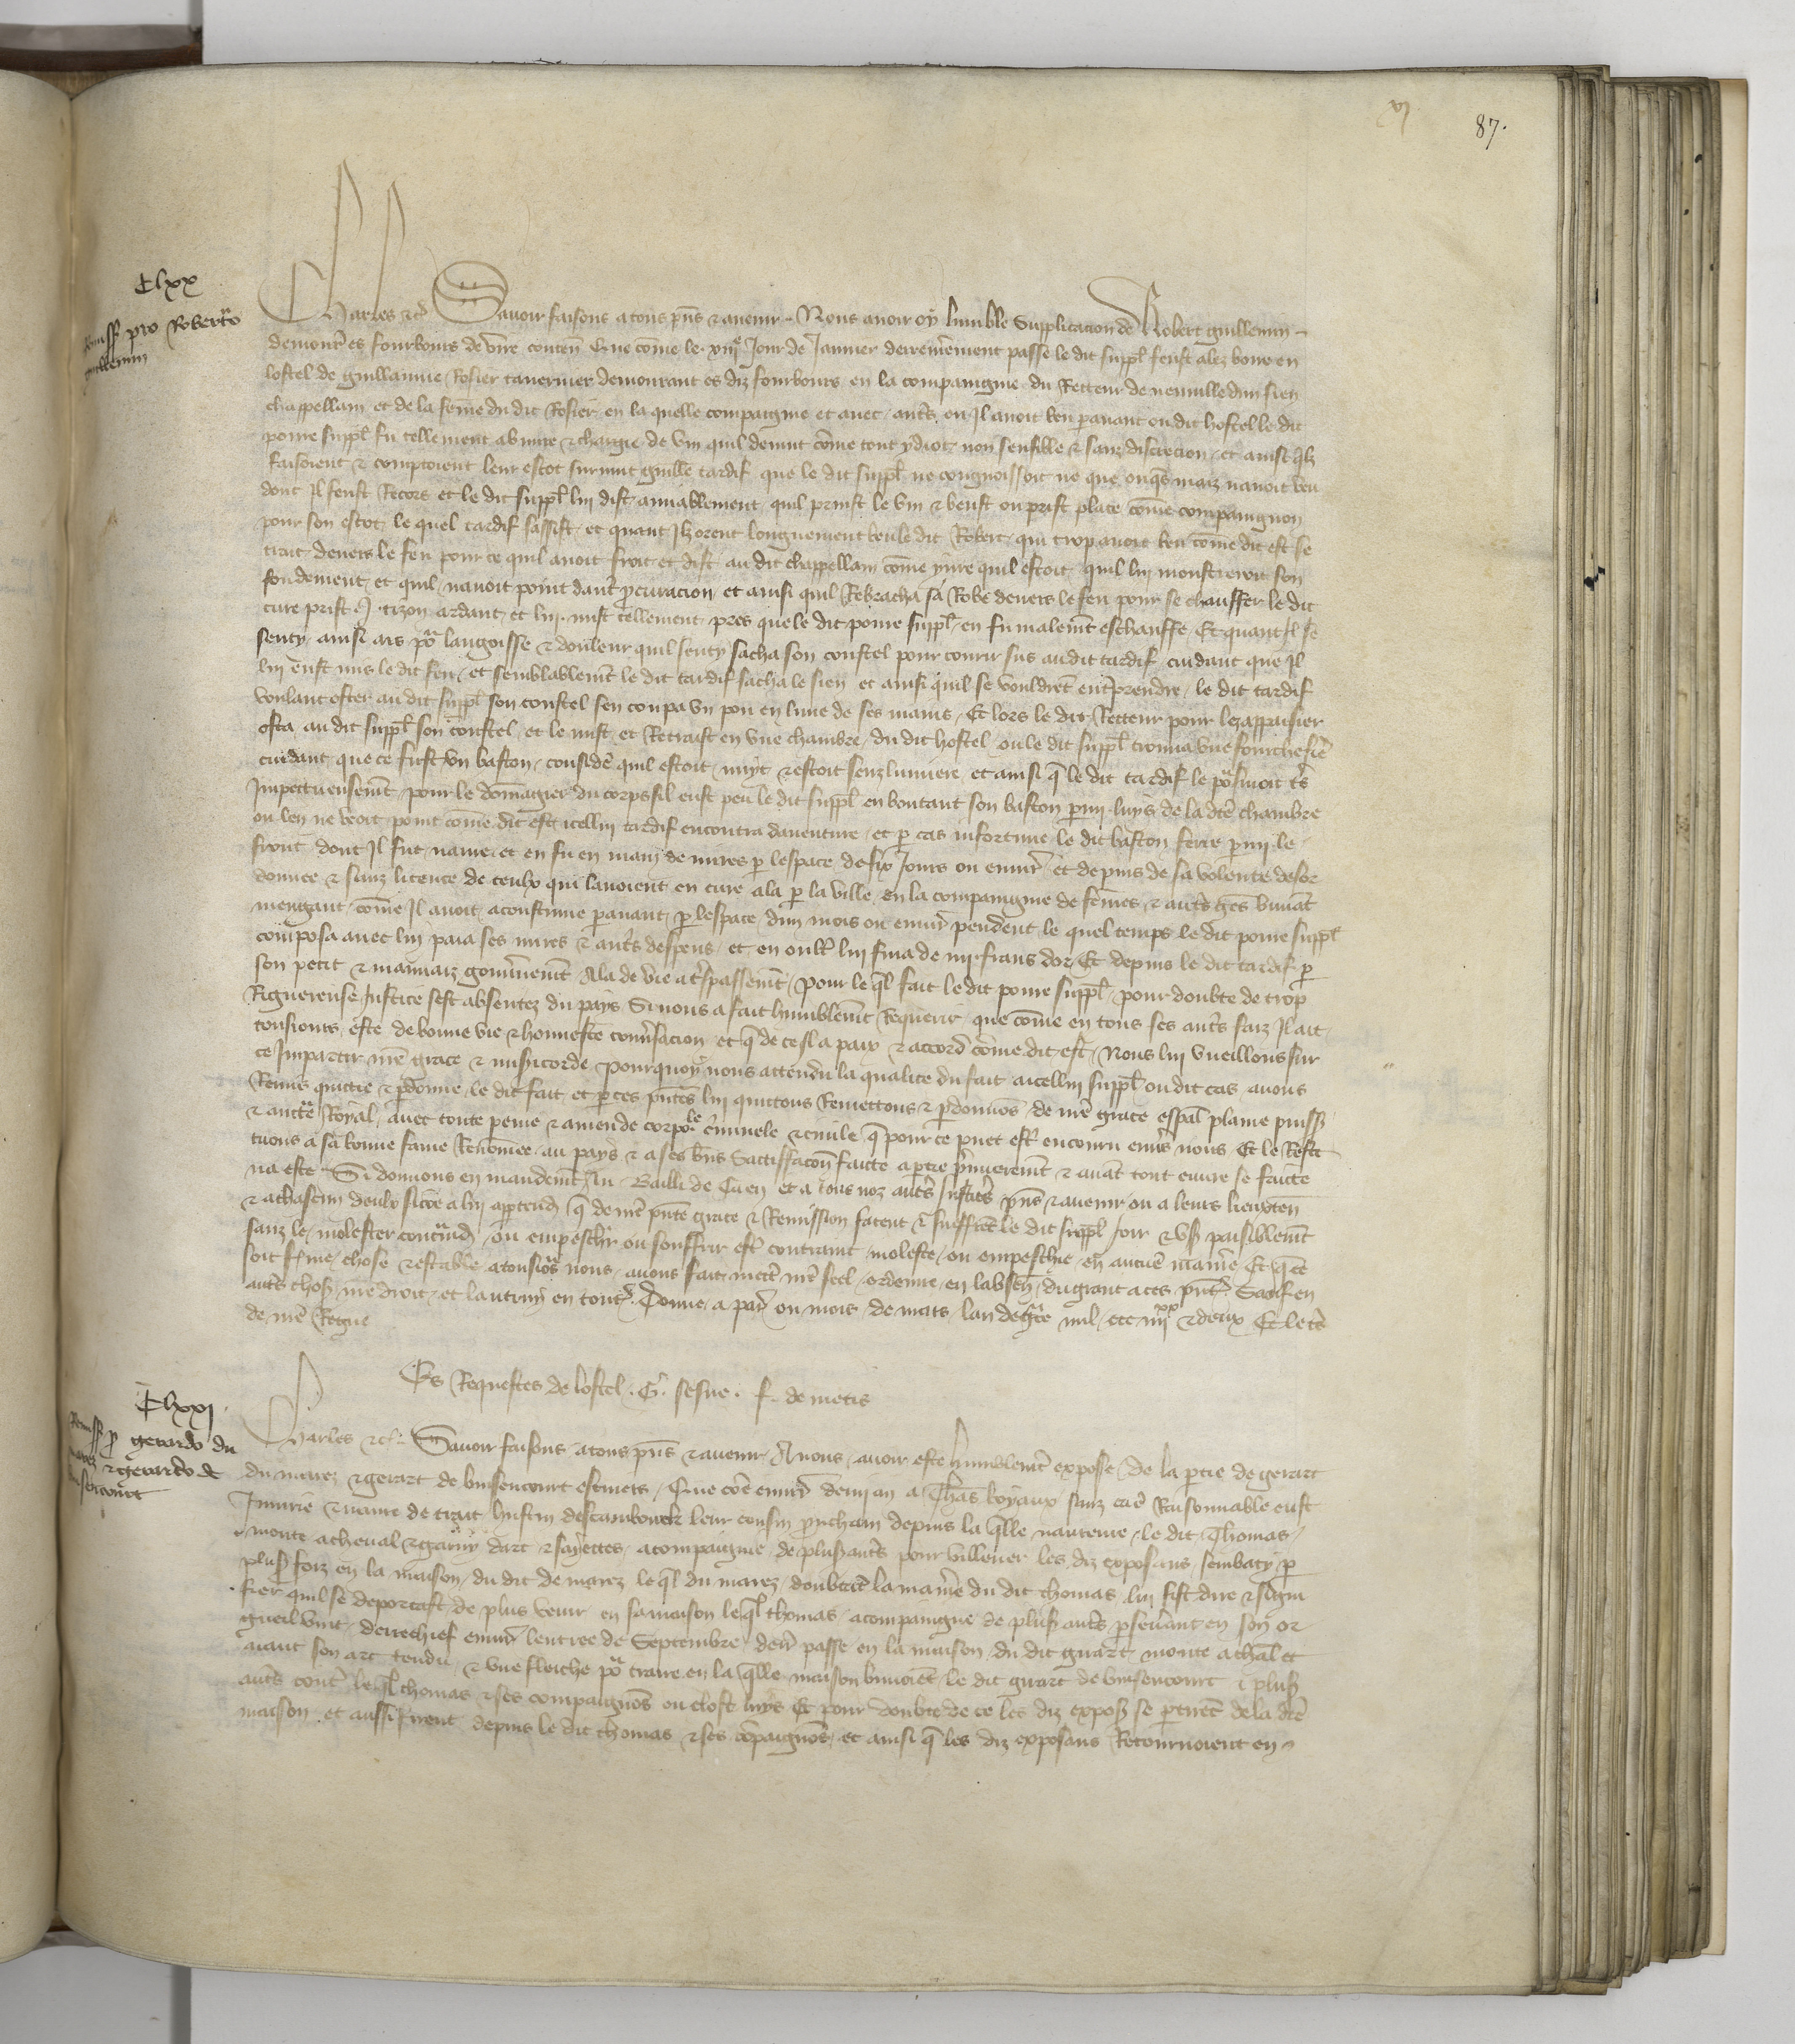 vi
87.
Clxx
Remiss pro Roberto
guillemin
Charles etc Savoir faisons a tous pns et avenir Nous avoir oy lumble Supplicacion de Robert guillemin
demourt es fourbours de conten Que come le xiiije Jour de Janvier derrenierement passe le dit suppl feust alez boire en
lostel de guillaume Rosier tavernier demourant es diz fourbours en la compaingnie du Retteur de neuville dun sien
chappellain et de la feme du dit Rosier en la quelle compaignie et avec autres ou Il avoit beu paravant ou dit hostel le dit
povre suppl fu tellement abuvre et chargie de vin quil devint come tout ydiot non sensible et sanz discrecion et ainsi qlz
faisoient et comptoient leur escot survint guille tardif que le dit suppl ne congnoissoit ne que onqs maiz navoit veu
dont Il feust Recors et le dit suppl lui dist amiablement quil preist le vin et beust ou prist place come compaingnon
pour son escot le quel tardif sassist et quant Ilz orent longuement beu le dit Robert qui trop avoit beu come dit est se
tirat devers le feu pour ce quil avoit froit et dist au dit chappellain come yvre quil estoit quil lui monstreroit son
fondement et quil navoit point dautre procuracion et ainsi quil Rebracha sa Robe devers le feu pour se chauffer le dit
cure prist J tizon ardant et lui mist tellement pres que le dit povre suppl en fu malemt eschauffe Et quant Il se
senty ainsi ars por langoisse et douleur quil senty sacha son coustel pour courir sus au dit tardif cuidant que Il
lui eust mis le dit feu et semblablemt le dit tardif sacha le sien et ainsi quil se vouldret entreprendre le dit tardif
voulant oster au dit suppl son coustel sen coupa un pou en lune de ses mains Et lors le dit Retteur pour lez appaisier
osta au dit suppl son coustel et le mist et Retraist en une chambre du dit hostel ou le dit suppl trouva une fourchefiere
cuidant que ce feust un baston considere quil estoit nuyt et estoit senz lumiere et ainsi q le dit tardif le porsuivoit tres
Impettueusemt pour le domagier du corps sil eust peu le dit suppl en boutant son baston parmi luys de la dte chambre
ou len ne veoit point come dit est icellui tardif encontra daventure et par cas infortune le dit baston ferre parmi le
front dont Il fut navre et en fu en main de mires par lespace de six Jours ou environ et depuis de sa volente desor
donnee et sanz licence de ceulx qui lavoient en cure ala par la ville en la compaingnie de femes et autres gens buvant
mengant come Il avoit acoustume paravant par lespace dun mois ou environ pendent le quel temps le dit povre suppl
composa avec lui paia ses mires et autres despens et en oultre lui fina de iiij frans dor Et depuis le dit tardif par
son petit et mauvaiz gouvernemt Ala de vie a trespassemt Pour le ql fait le dit povre suppl pour doubte de trop
Riguereuse Justice sest absentez du pays Si nous a fait humblemt Requerir que come en tous ses autres faiz Il ait
tousiours este de bonne vie et honneste conversacion et q de ce Il a paix et accord come dit est Nous lui vueillons sur
ce Impartir nre grace et misericorde Pourquoy nous attendu la qualite du fait a icellui suppl ou dit cas avons
Remis quictie et pardonne le dit fait et par ces pntes lui quictons Remettons et pardonnons de nre grace espal plaine puiss
et auctte Royal avec toute peine et amende corporele criminele et civile q pour ce puet estre encouru envers nous Et le Resti
tuons a sa bonne fame Renomee au pays et a ses biens Sattisfacon faicte a partie premieremt et avant tout euvre se faicte
na este Si donnons en mandemt Au Bailli de Caen et a tous noz autres Justiciers pns et avenir ou a leurs lieuxten
et a chascun deulx sicome a lui appartendra q de nre pnte grace et Remission facent et suefrent le dit suppl Joir et user paisiblemt
sanz le molester contraindre ou empeschier ou souffrir estre contraint moleste ou empeschie en aucune maniere Et q ce
soit ferme chose et estable a tousiours nous avons fait mettre nre seel ordenne en labsence du grant a ces pntes Sauf en
autres choses nre droit et lautrui en toutes Donne a paris ou mois de mars lan de grace mil ccc iiijxx et deux Et le tiers
de nre Regne
Es Requestes de lostel . G. sesne . f. de metis
Clxxi
Remiss pro gerardo du
marez et gerardo de
buisencourt
Charles etc Savoir faisons a tous pns et avenir A nous avoir este humblemt expose de la partie de gerart
du marez et gerart de buisencourt escuiers Que come environ demi an a Thomas boyaux sanz cause Raisonnable eust
Injurie et navre de trait huistin leur cousin prouchain depuis la qlle navreure le dit Thomas
monte a cheval et garny darc et sayettes acompaignie de pluss autres pour villener les diz exposans sembaty par
pluss foiz en la maison du dit de marez le ql du marez doubtant la maniere du dit thomas lui fist dire et signi
fier quil se deportast de plus venir en sa maison le ql thomas acompaingnie de pluss autres perseverant en son or
gueil vint derrechief environ lentree de Septembre derr passe en la maison du dit girart monte a cheval et
aiant son arc tendu et une fleiche por traire en la qlle maison buvoient le dit girart de buisencourt et pluss
autres contre le ql thomas et ses compaignons on clost luys Et pour doubte de ce les diz expos se partirent de la dte
maison et aussi firent depuis le dit thomas et ses compaignons et ainsi q les diz exposans Retournoient en